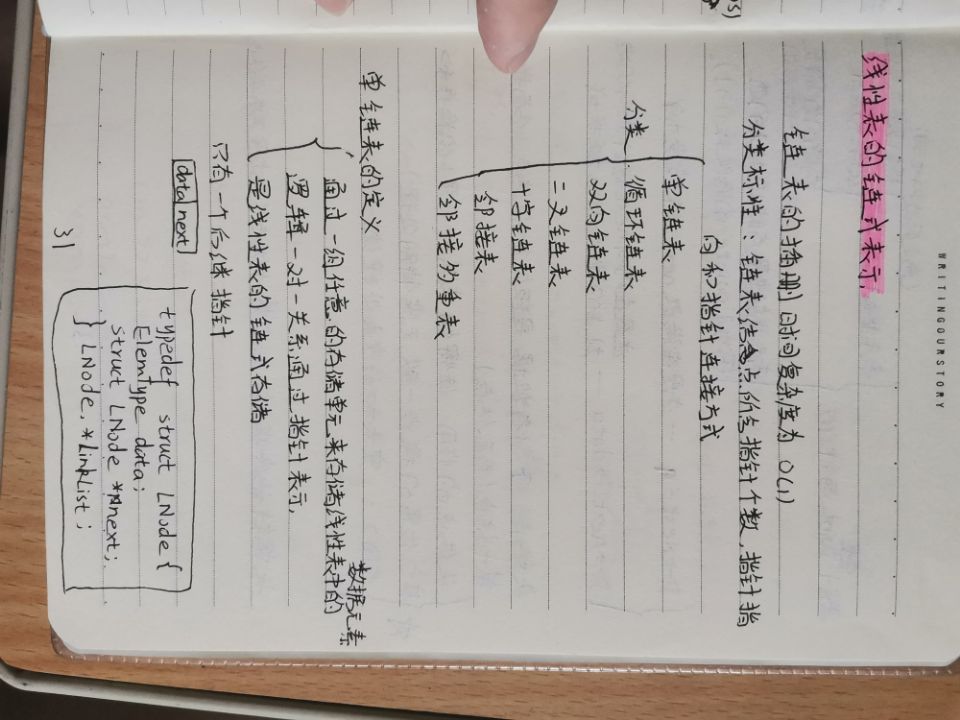 WRITINGOURSTORY
线性表的链式表示
链表的插删时间复杂度为 O(1)
分类标准：链表结点所含指针个数，指针指
向和指针连接方式
分类
单链表
循环链表
双向链表
二叉链表
十字链表
邻接表
邻接多重表
单链表的定义
通过一组任意的存储单元来存储线性表中的数据元素
逻辑一对一关系通过指针表示，
是线性表的链式存储
只有一个后继指针
data next
typedef struct LNode {
ElemType data;
struct LNode *next;
} LNode, *LinkList;
31